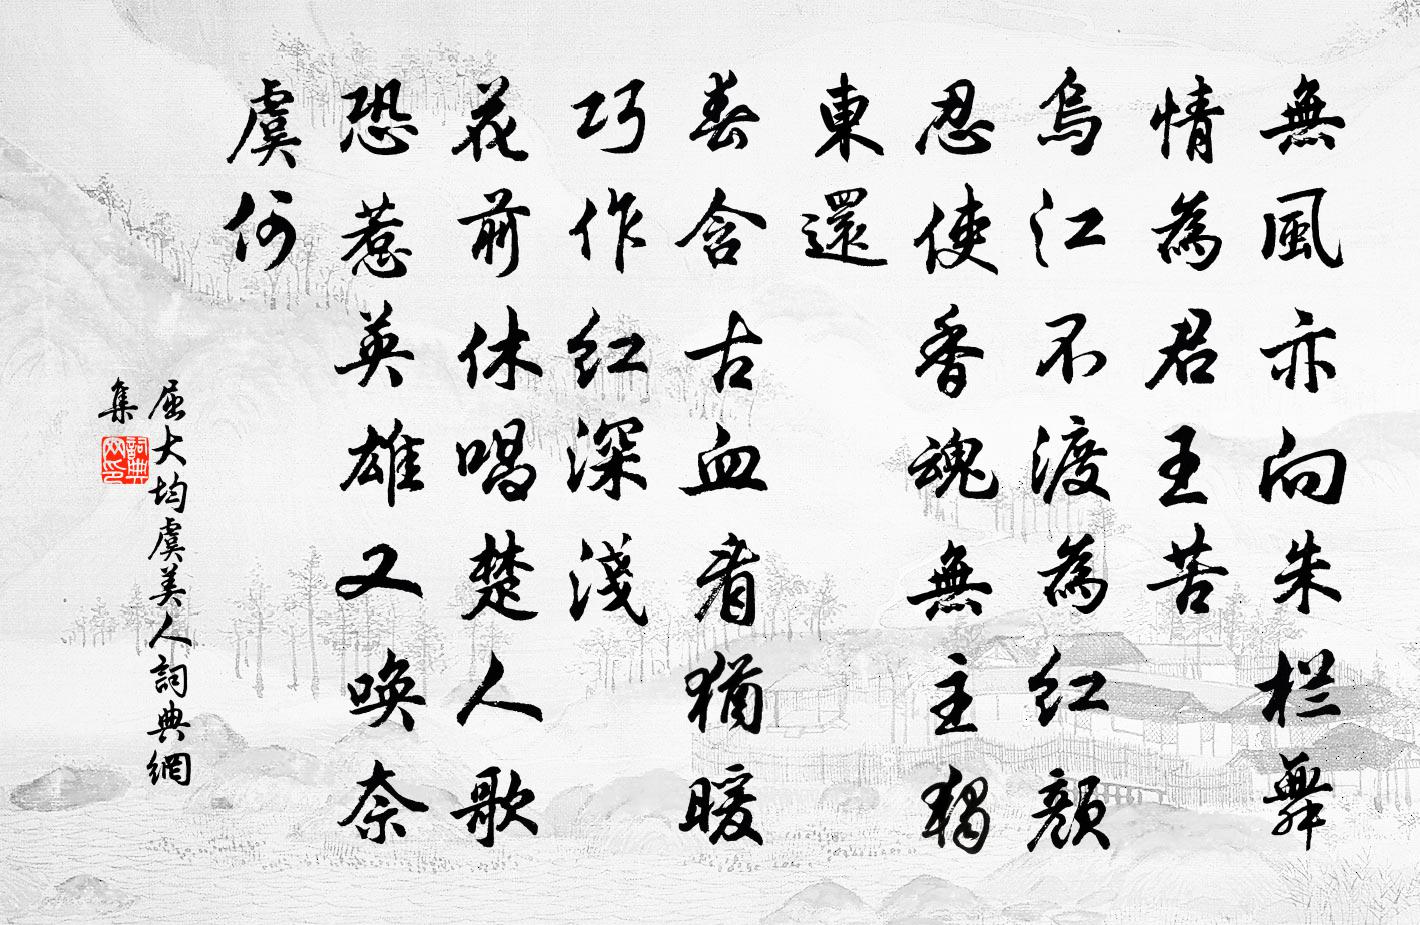 無風亦向朱栏舞
情為君王苦
烏江不渡為紅顏
忍使香魂無主獨
東還
春含古血看猶暖
巧作紅深淺
花前休唱楚人歌
恐惹英雄又喚奈
虞何
屈大均虞美人詞典網
集
詞典網印